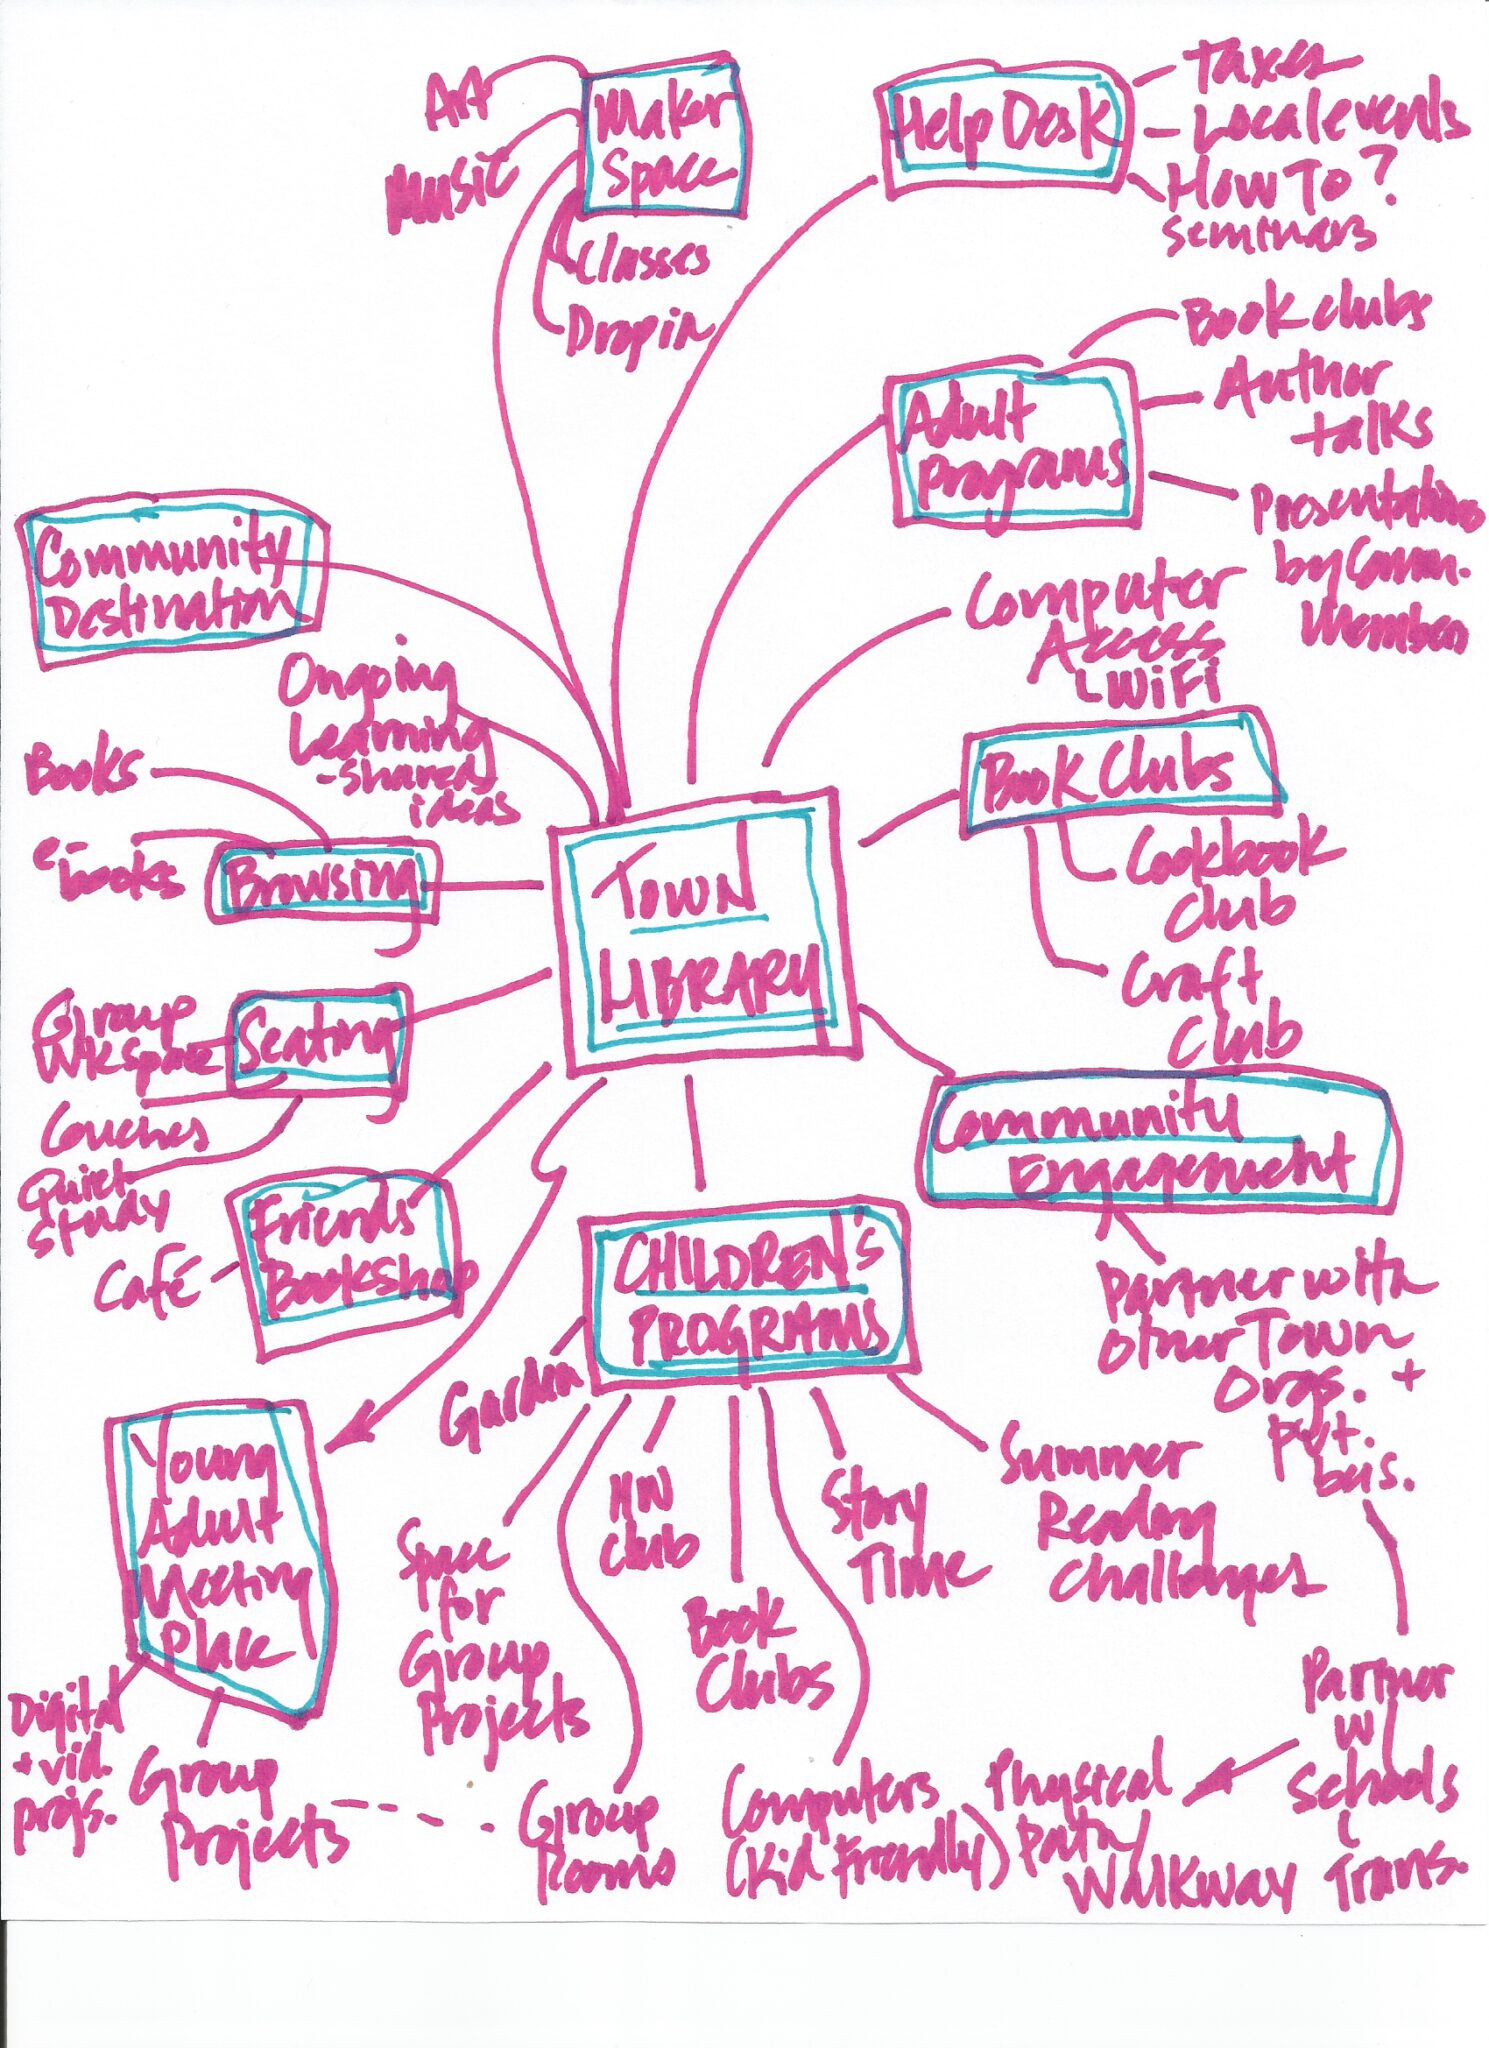 Art
Music
Maker
Space
Classes
Dropin
Help Desk
Taxes
Local events
How To?
Seminars
Adult
Programs
Book clubs
Author
talks
Presentations
by Comm.
Members
Computer
Access
WiFi
Community
Destination
Ongoing
Learning
-shared
ideas
Books
e-
books
Browsing
Town
Library
Book Clubs
Cookbook
Club
Craft
Club
Group
Wkspace
Seating
Couches
Quiet
Study
Café
Friends
Bookshop
Community
Engagement
Partner with
other Town
Orgs. +
pvt.
bus.
Partner
w/
Schools
Trans.
Physical
Path/
Walkway
CHILDREN'S
PROGRAMS
Garden
Space
for
Group
Projects
Group
Rooms
HW
Club
Book
Clubs
Computers
(Kid Friendly)
Story
Time
Summer
Reading
Challenges
Young
Adult
Meeting
Place
Digital
+ vid.
projs.
Group
Projects